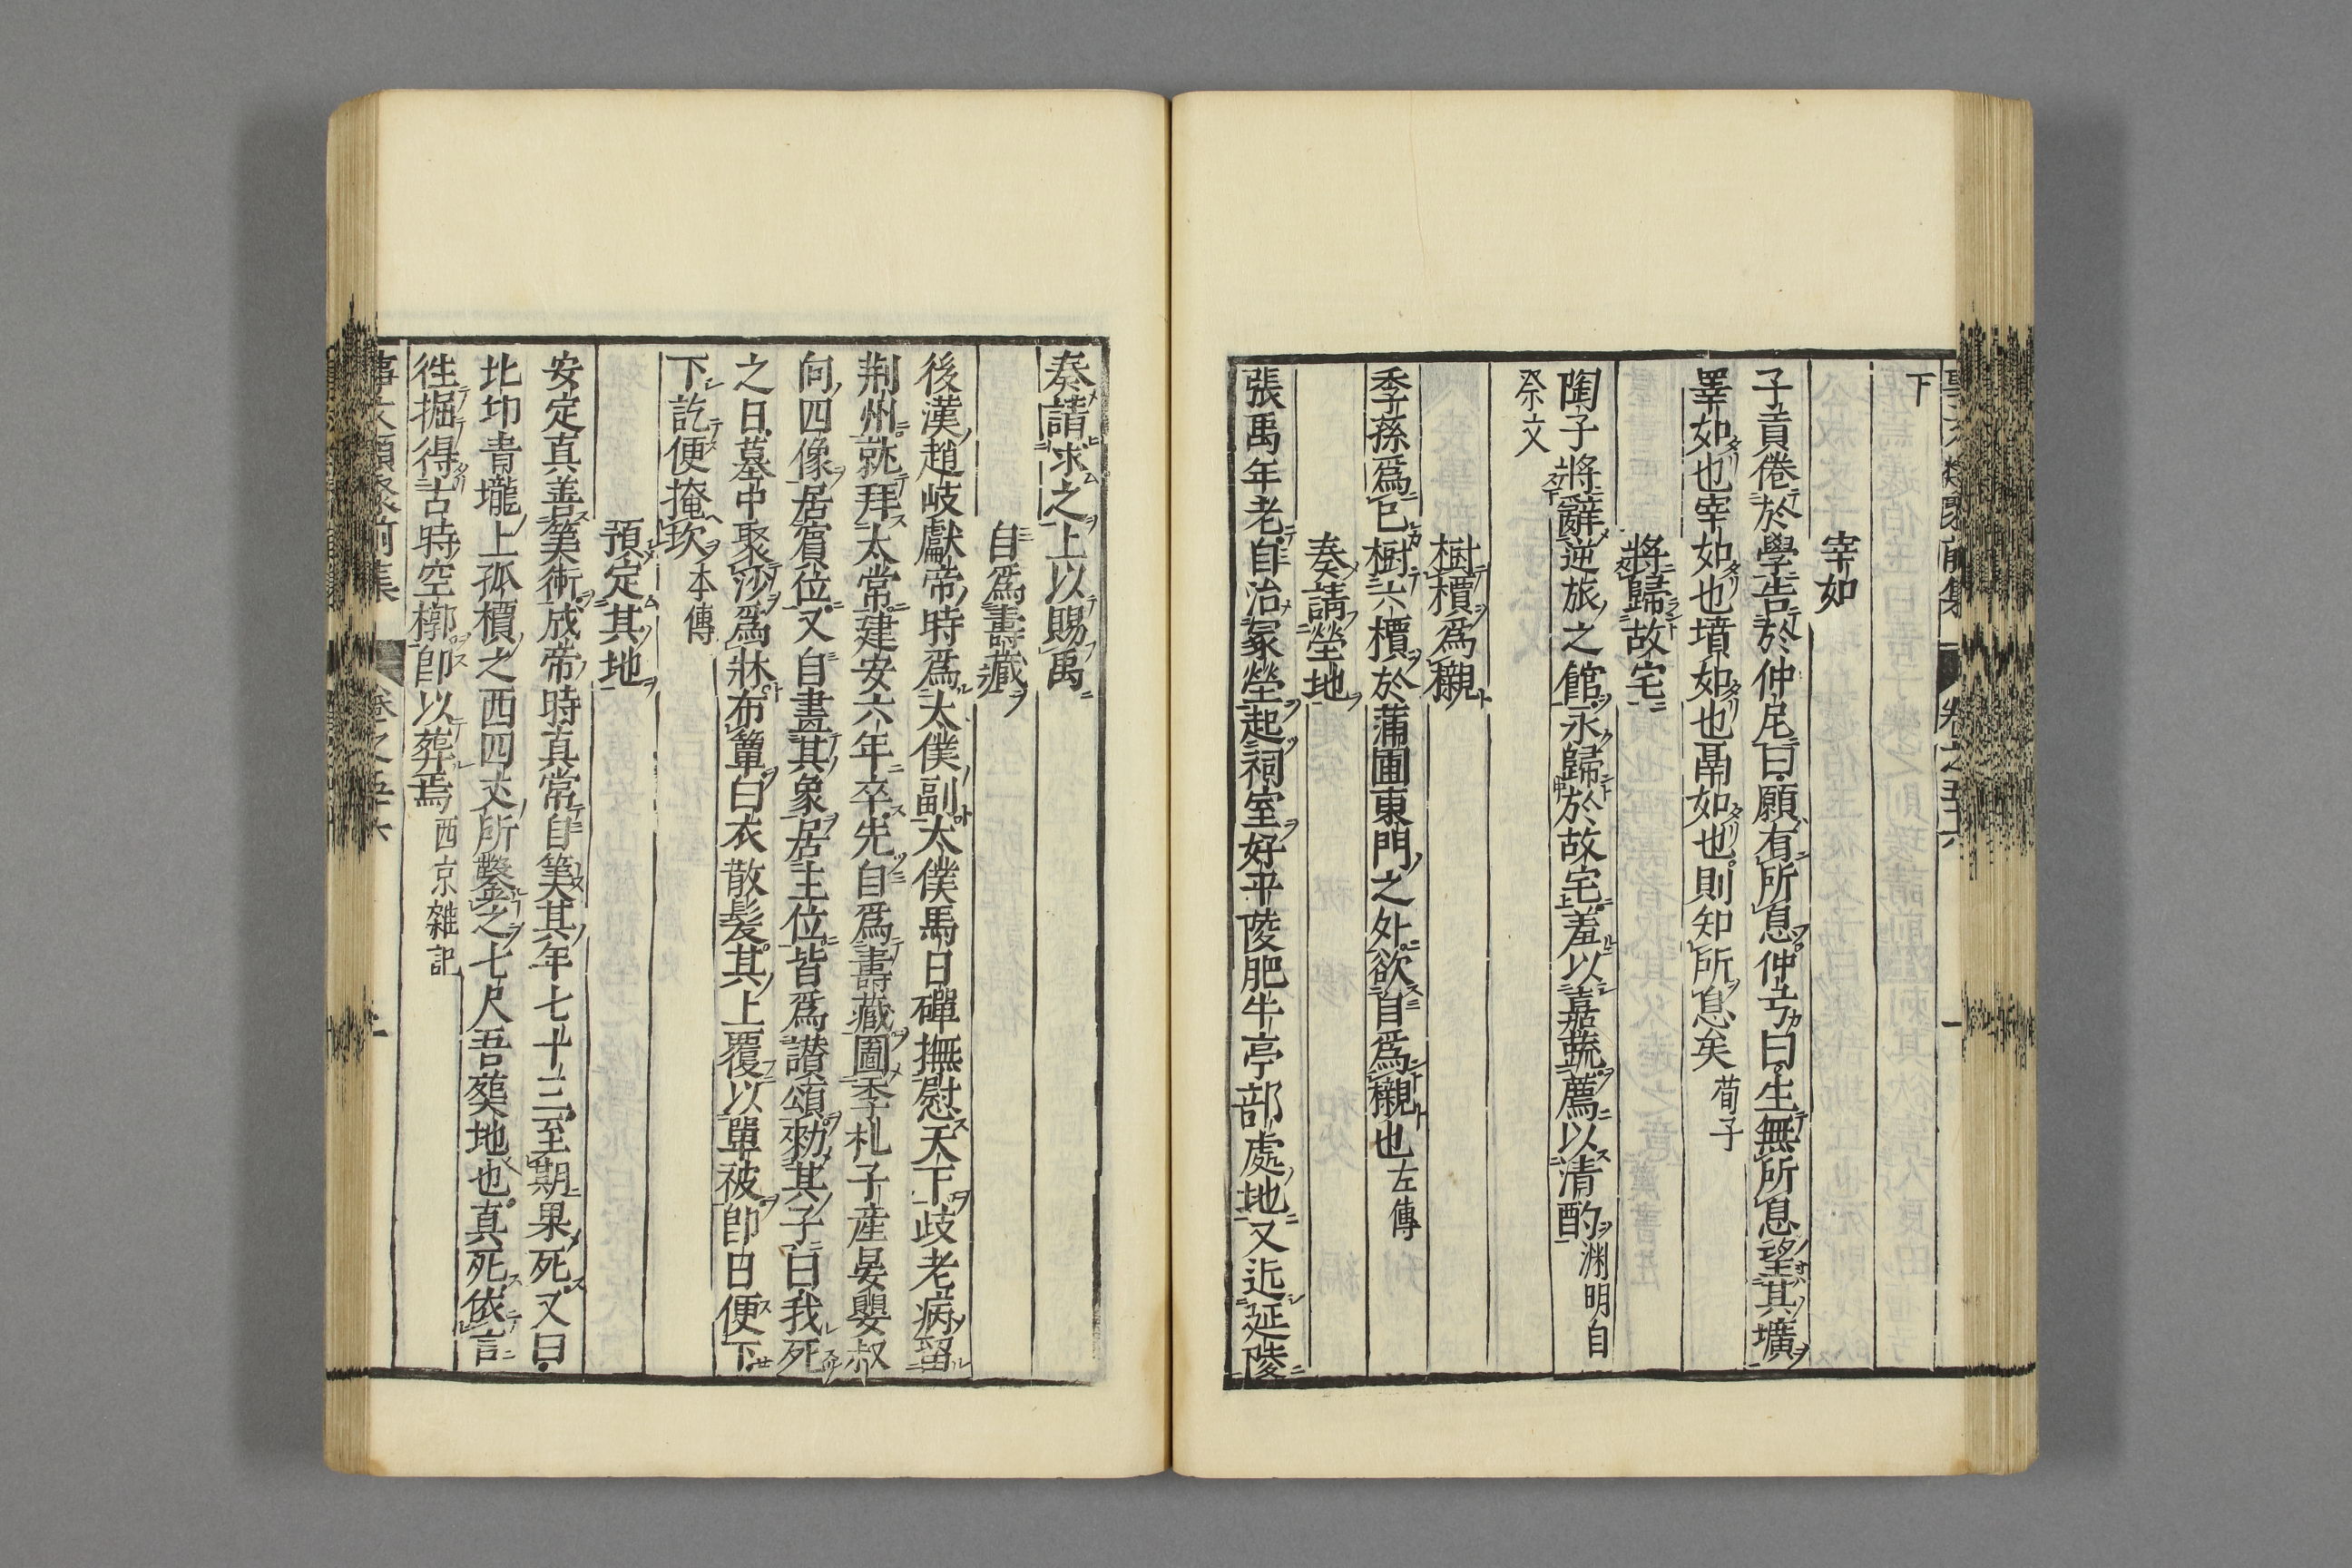 下
宰如
子貢倦於學告於仲尼曰願有所息仲尼曰生無所息望其壙
睪如也宰如也墳如也鬲如也則知所息矣荀子
將歸故宅
陶子將辭逆旅之館永歸於故宅羞以嘉蔬薦以清酌淵明自
祭文
樹檟爲櫬
季孫爲已樹六檟於蒲圃東門之外欲自爲櫬也左傳
奏請塋地
張禹年老自治冢塋起祠室好平陵肥牛亭部處地又近延陵
奏請求之上以賜禹
自爲壽藏
後漢趙岐獻帝時爲太僕副太僕馬日磾撫慰天下岐老病留
荆州就拜太常建安六年卒先自爲壽藏圖季札子產晏嬰叔
向四像居賓位又自畫其象居主位皆爲讃頌勑其子曰我死
之日墓中聚沙爲牀布簟白衣散髮其上覆以單被即日便下
下訖便掩坎本傳
預定其地
安定真善筭術成帝時真常自筭其年七十三至期果死又曰
北邙青壠上孤檟之西四丈所鑿之七尺吾葬地也真死依言
徃掘得古時空槨即以葬焉西京雜記
事文類聚前集 卷之五十六